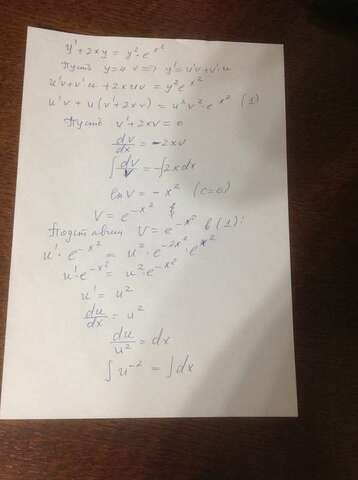 y' + 2xy = y² · e^{x²}
Пусть y = u v ⇒ y' = u'v + v'·u
u'v + v'u + 2xuv = y² e^{x²}
u'v + u(v' + 2xv) = u²v² · e^{x²} (1)
Пусть v' + 2xv = 0
dv/dx = -2xv
∫ dv/v = -∫ 2xdx
ln V = -x² (c=0)
V = e^{-x²}
Подставим V = e^{-x²} в (1):
u' · e^{-x²} = u² · e^{-2x²} · e^{x²}
u' · e^{-x²} = u² · e^{-x²}
u' = u²
du/dx = u²
du/u² = dx
∫ u^{-2} = ∫ dx